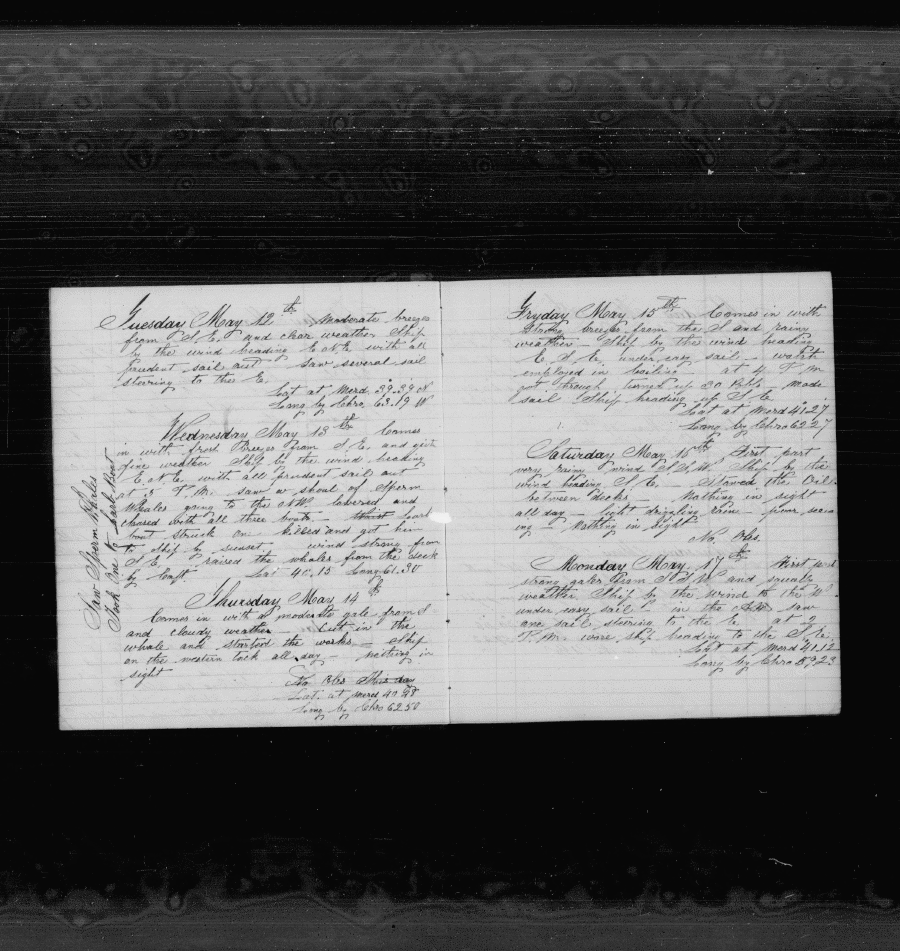 Tuesday May 12th Moderate breezes
from S.E. and clear weather Ship
by the wind heading E.N.E. with all
prudent sail out Saw several sail
steering to the E.
Lat at Merd 39.39 N
Long by Chro 63.19 W
Wednesday May 13th Comes
in with fresh Breezes from S.E. and
fine weather Ship by the wind heading
E.N.E. with all prudent sail out
at 5 P.M. saw a shoal of Sperm
Whales going to the NW. lowered and
chased with all three boats. Larb
boat struck one killed and got him
to ship by sunset, wind strong from
S.E. raised the whales from the deck
by Capt. Lat 40.15 Long 61.30
Saw Sperm Whales
Took One to Larb Boat
Thursday May 14th
Comes in with a moderate gale from S
and cloudy weather Cut in the
whale and started the works Ship
on the western tack all day nothing in
sight
No Obs this day
Lat at Merd 40.48
Long by Chro 62.50
Fryday May 15th Comes in with
Strong breezes from the S and rainy
weather Ship by the wind heading
E.S.E. under easy sail watch
employed in boiling at 4 P.M.
got through turned up 30 Bbls made
sail Ship heading up S.E.
Lat at Merd 41.27
Long by Chro 62.27
Saturday May 16th First part
very rainy wind S.S.W. Ship by the
wind heading S.E. Stowed the Oil
between decks Nothing in sight
all day light drizzling rain
Nothing in Sight
No Obs.
Monday May, 17th First part
strong gales from S.S.W. and squally
weather Ship by the wind to the W
under easy sail in the saw
one sail steering to the E at 2
P.M. wore ship heading to the S.E.
Lat at Merd 41.12
Long by Chro 59.23